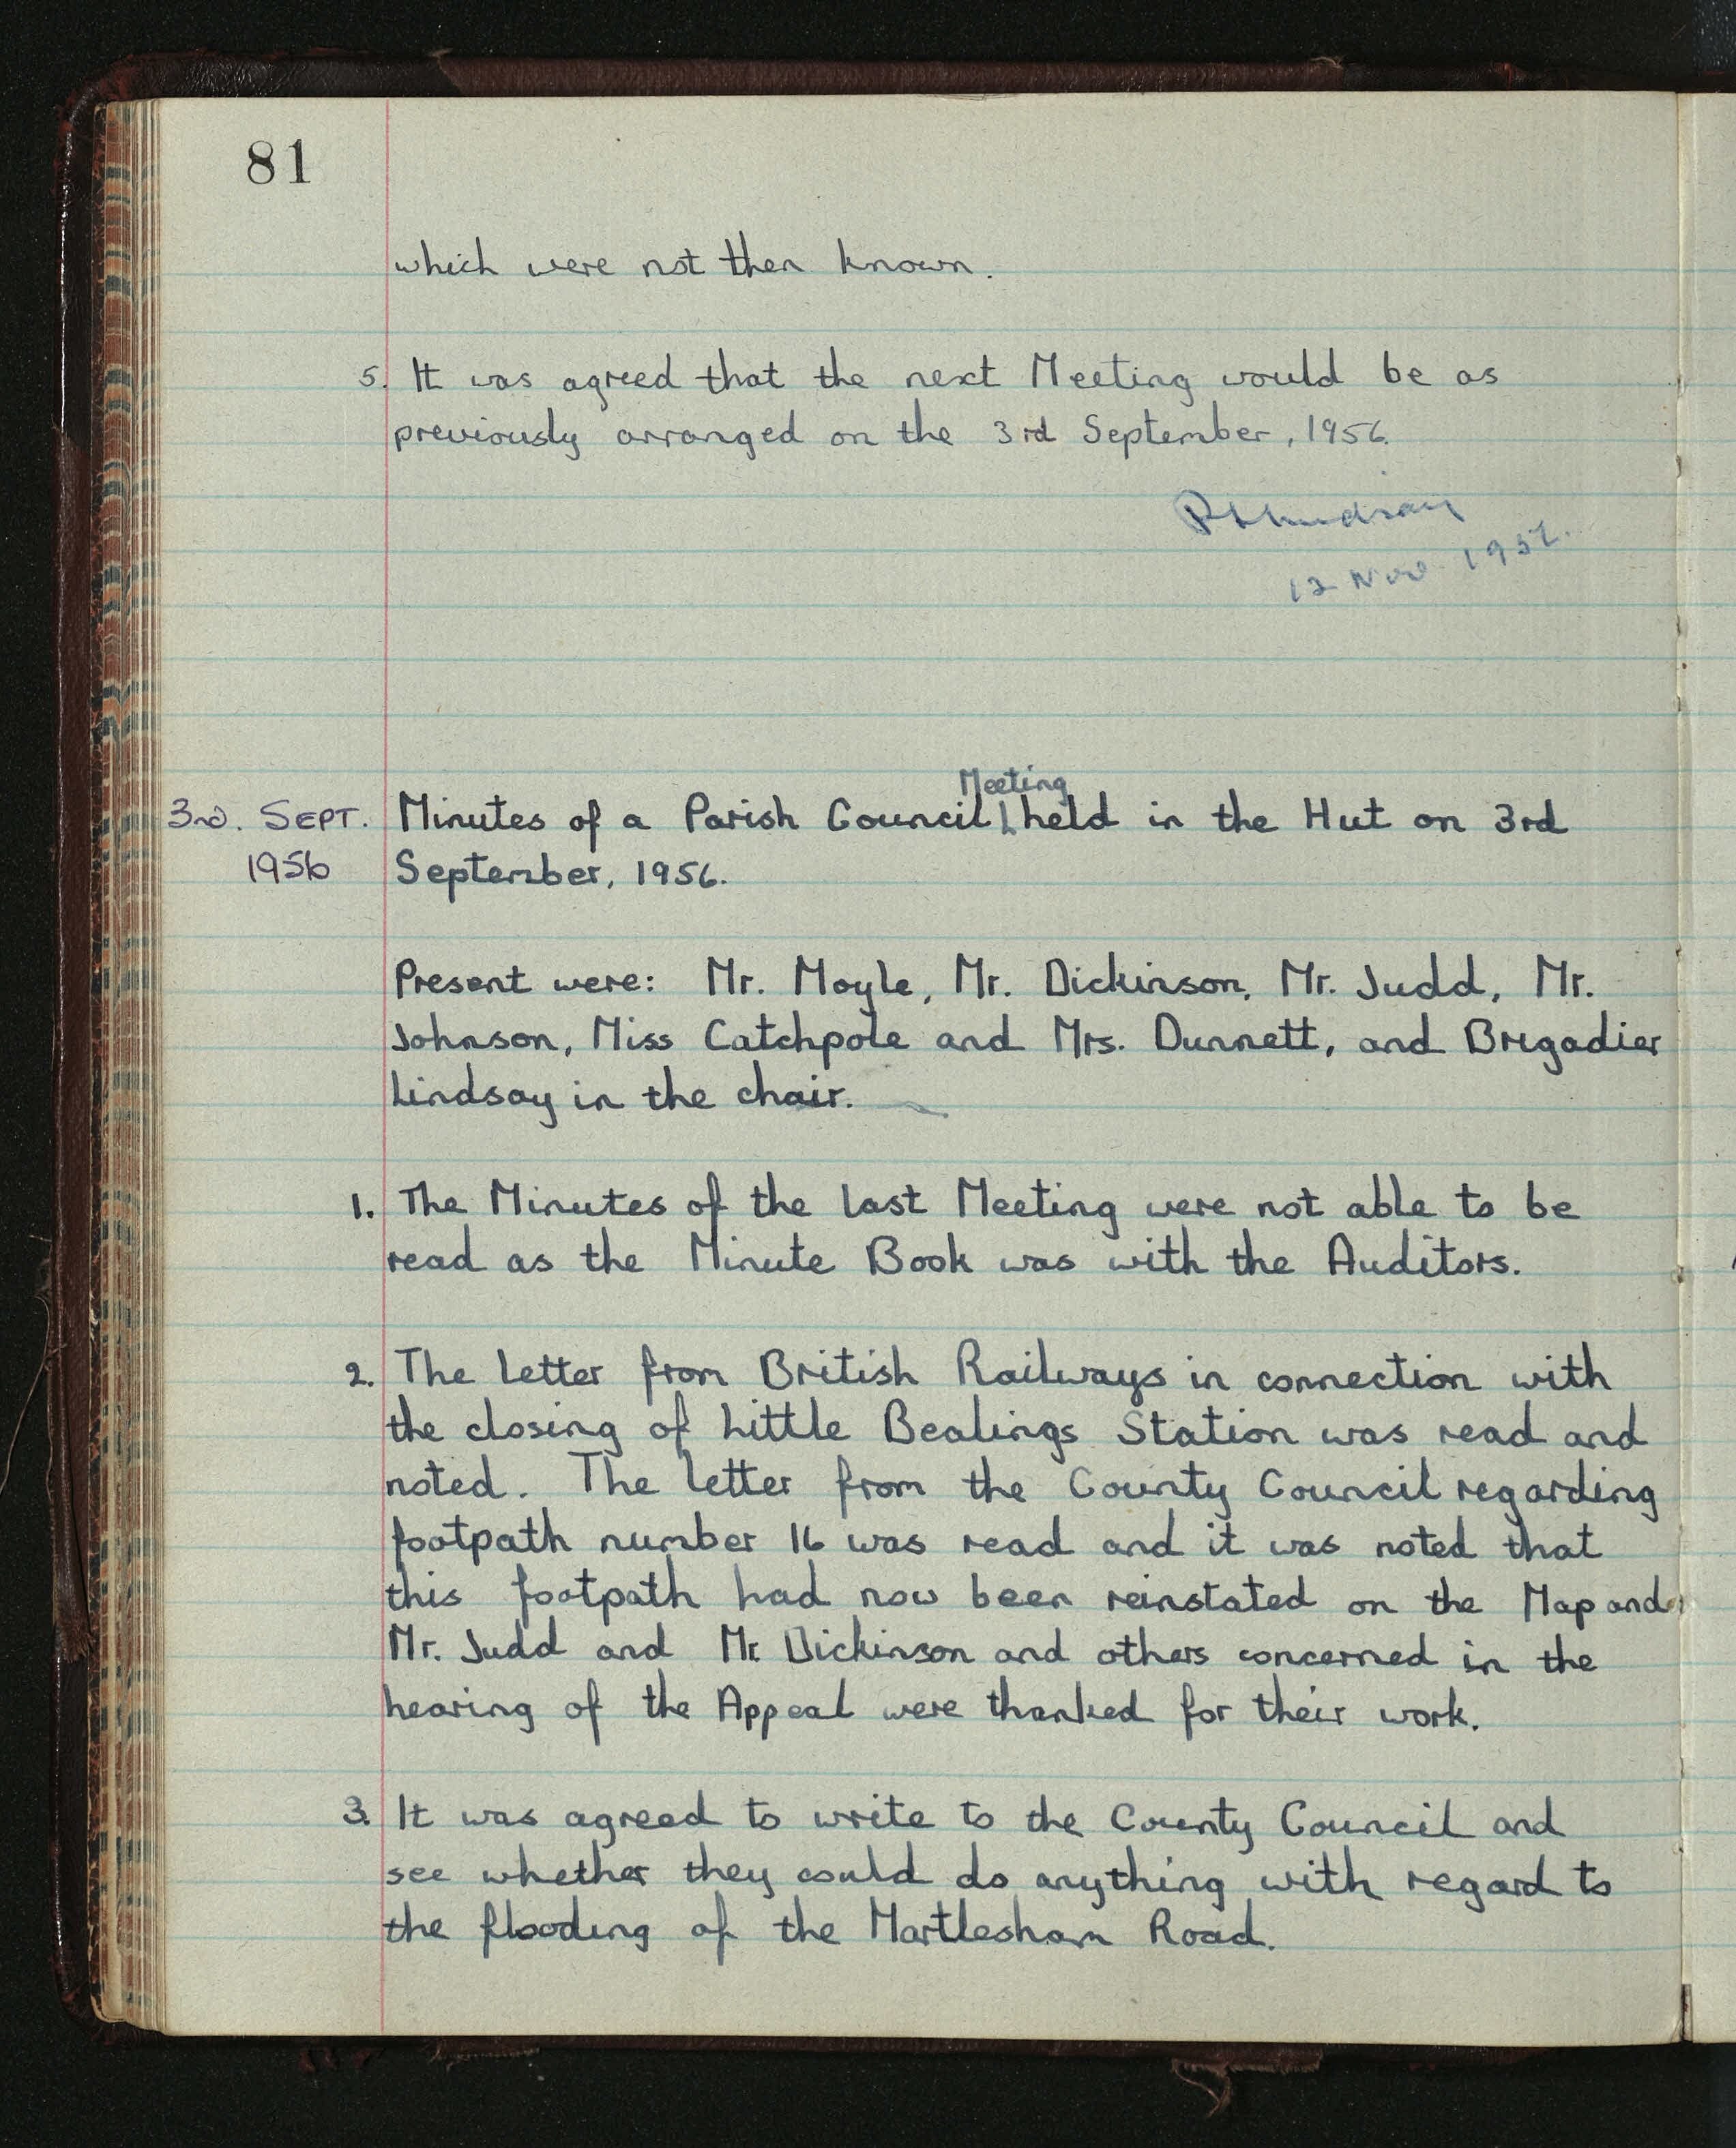 81
which were not then known.
5. It was agreed that the next Meeting would be as
previously arranged on the 3rd September, 1956.
12 Nov. 1956.
3rd. SEPT. 1956
Minutes of a Parish Council Meeting held in the Hut on 3rd
September, 1956.
Present were: Mr. Moyle, Mr. Dickinson, Mr. Judd, Mr.
Johnson, Miss Catchpole and Mrs. Dunnett, and Brigadier
Lindsay in the chair.
1. The Minutes of the last Meeting were not able to be
read as the Minute Book was with the Auditors.
2. The letter from British Railways in connection with
the closing of Little Bealings Station was read and
noted. The letter from the County Council regarding
footpath number 16 was read and it was noted that
this footpath had now been reinstated on the Map and
Mr. Judd and Mr. Dickinson and others concerned in the
hearing of the Appeal were thanked for their work.
3. It was agreed to write to the County Council and
see whether they could do anything with regard to
the flooding of the Martlesham Road.